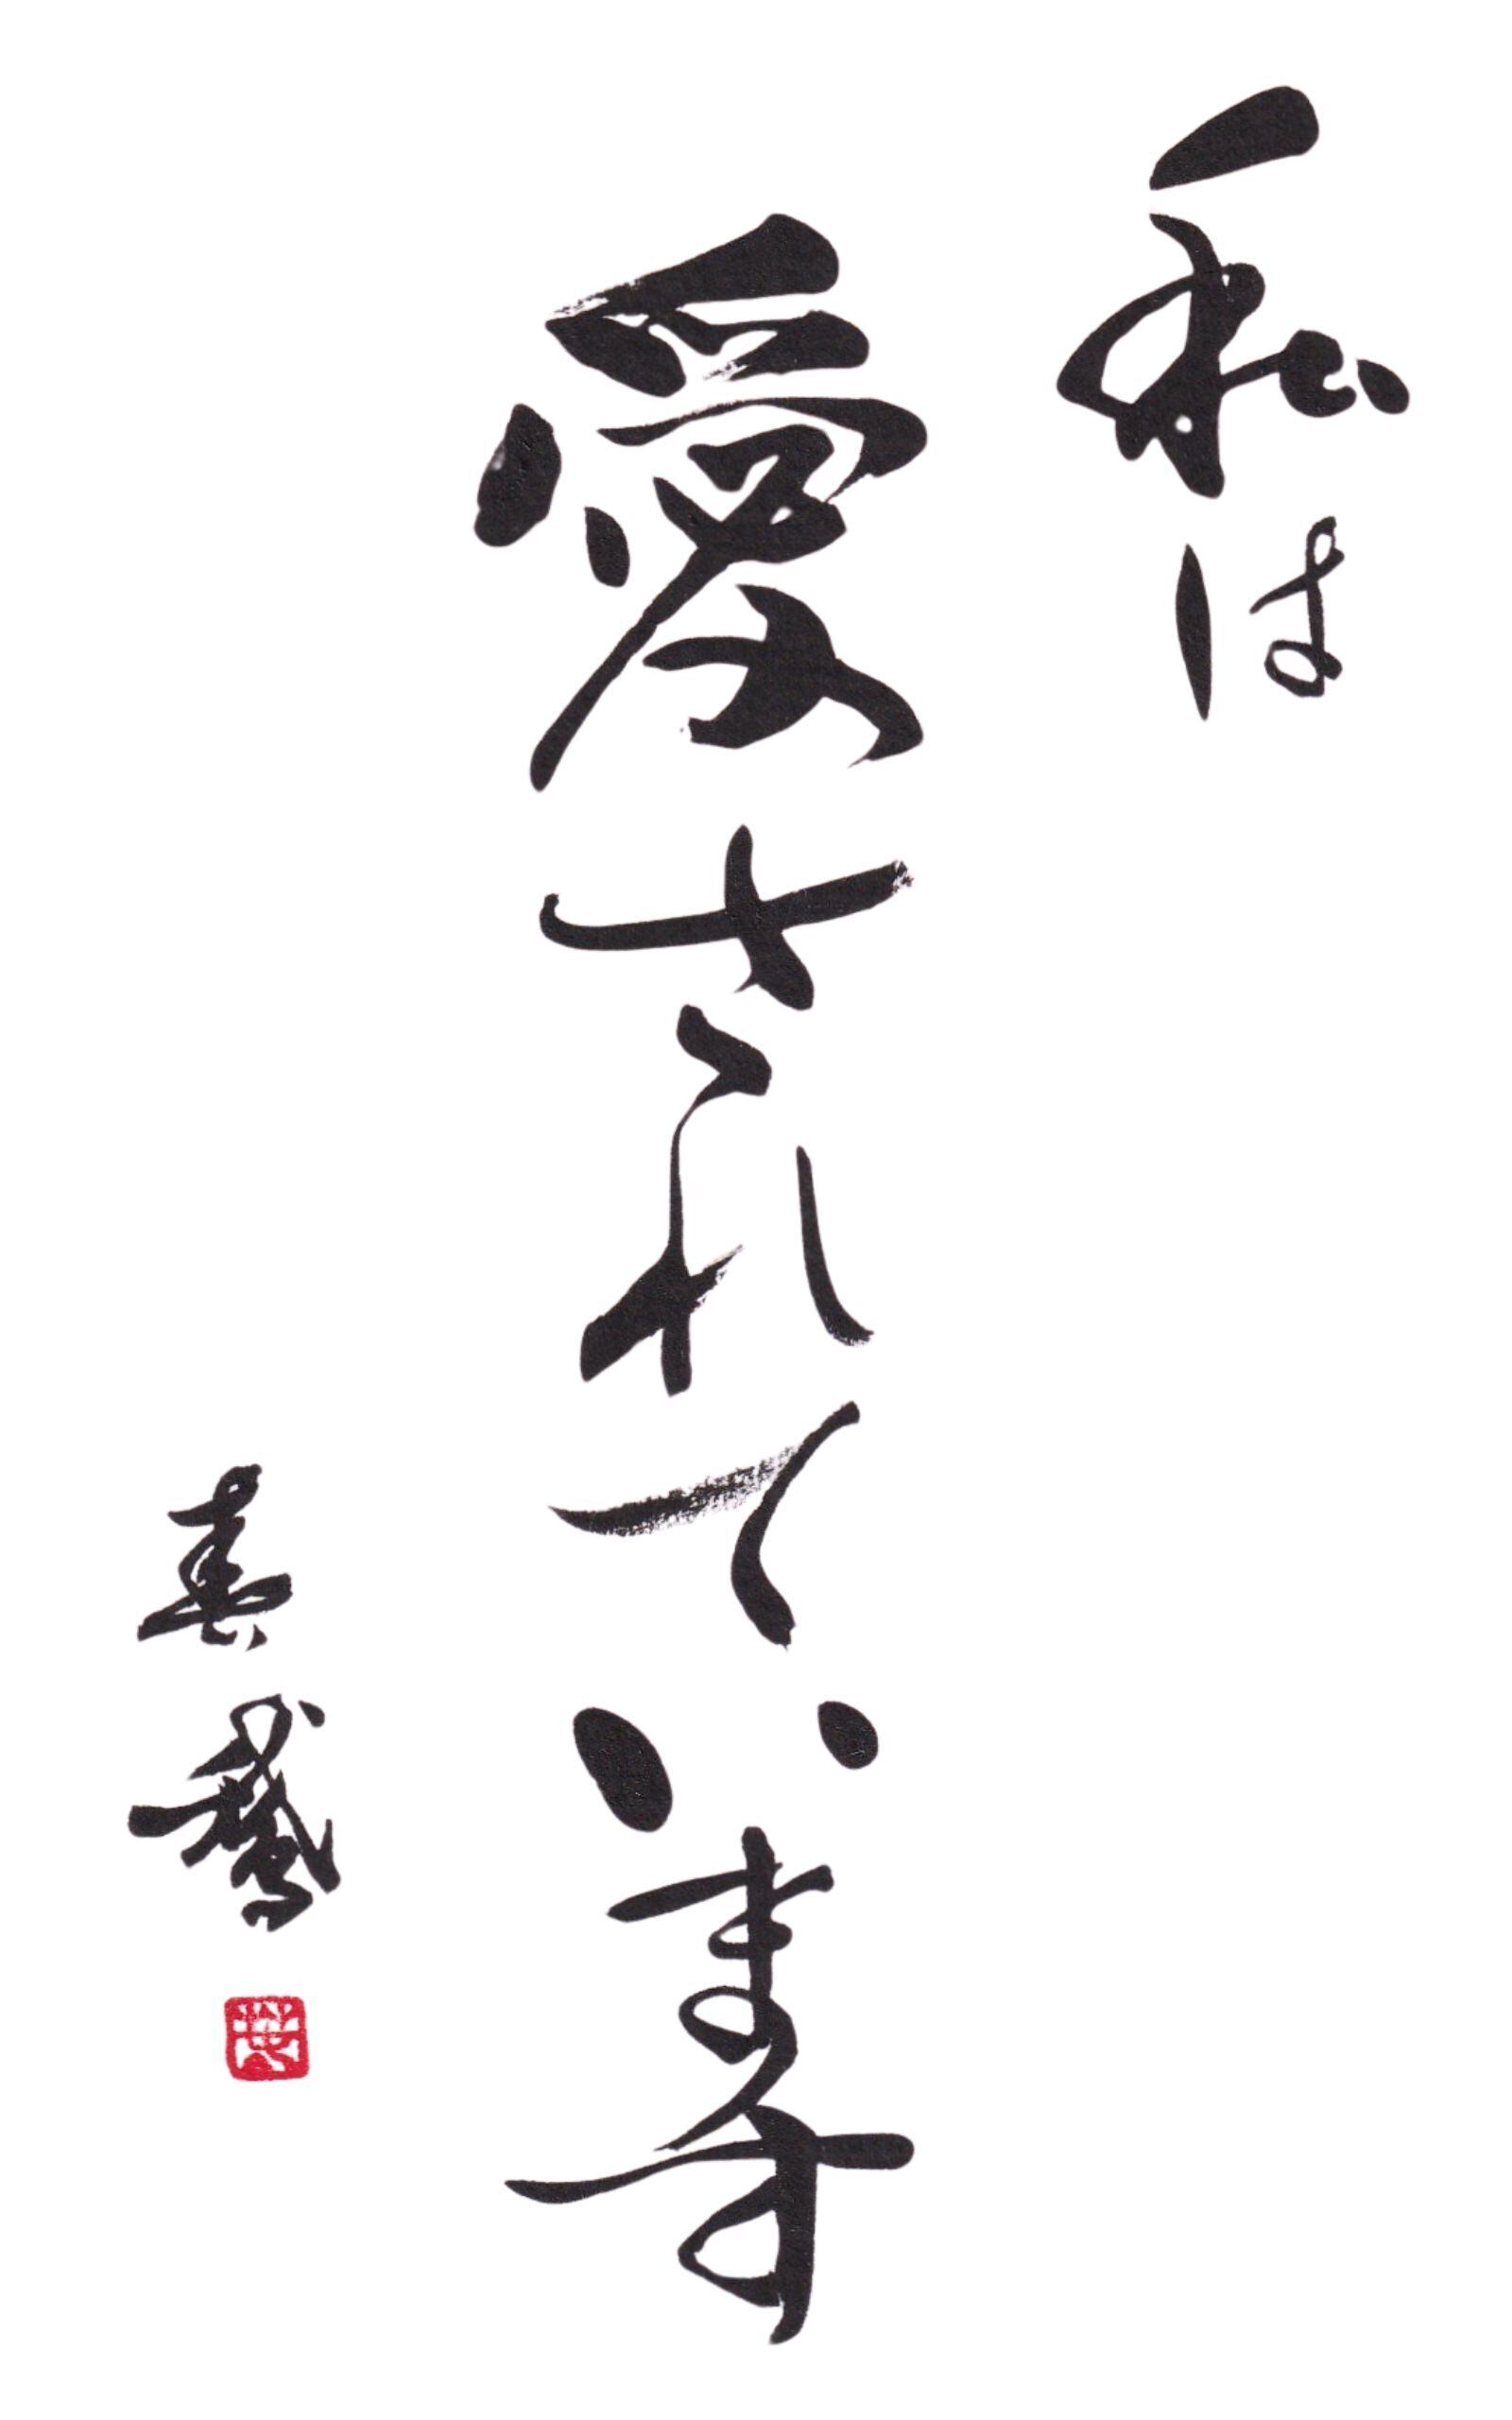 私は
愛されています
春鵞